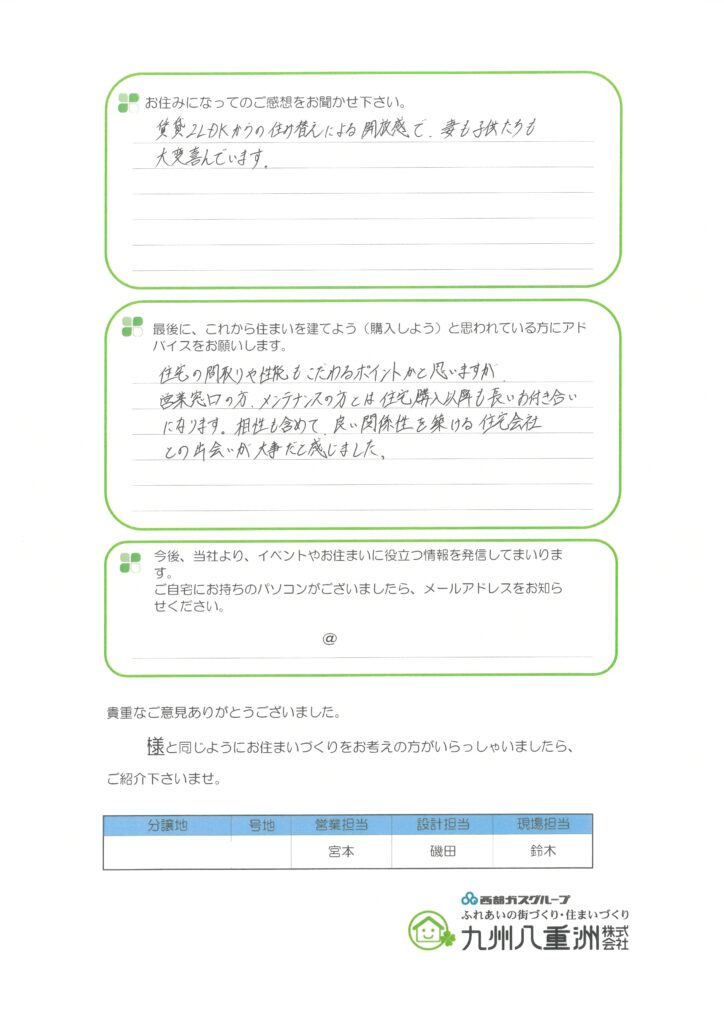 お住みになってのご感想をお聞かせ下さい。
賃貸2LDKからの住み替えによる開放感で、妻も子供たちも
大変喜んでいます。
最後に、これから住まいを建てよう（購入しよう）と思われている方にアド
バイスをお願いします。
住宅の間取りや性能もこだわるポイントかと思いますが、
営業窓口の方、メンテナンスの方とは住宅購入以降も長いお付き合い
になります。相性も含めて、良い関係性を築ける住宅会社
との出会いが大事だと感じました。
今後、当社より、イベントやお住まいに役立つ情報を発信してまいりま
す。
ご自宅にお持ちのパソコンがございましたら、メールアドレスをお知ら
せください。
@
貴重なご意見ありがとうございました。
様と同じようにお住まいづくりをお考えの方がいらっしゃいましたら、
ご紹介下さいませ。
分譲地 号地 営業担当 設計担当 現場担当
宮本 磯田 鈴木
西部ガスグループ
ふれあいの街づくり・住まいづくり
九州八重洲株式会社